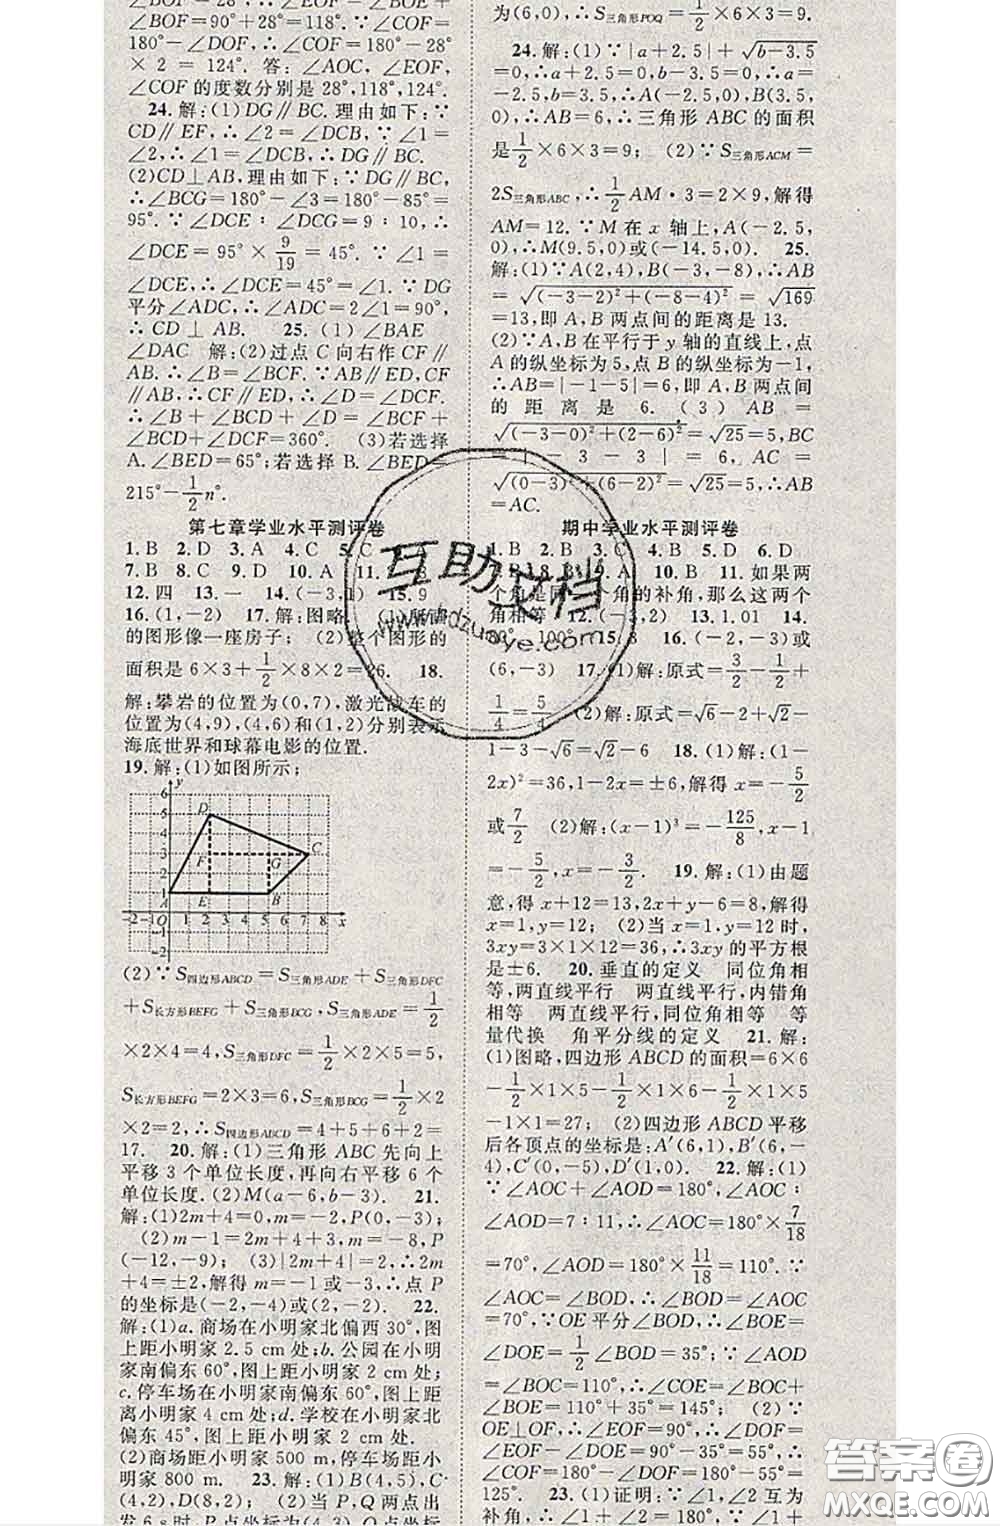 ∠BOF=90°+28°=118°.∠COF=
180°-∠DOF,∴∠COF=180°-28°
×2=124°. 答:∠AOC,∠EOF,
∠COF的度数分别是28°,118°,124°.
24.解:(1)DG∥BC.理由如下:∵
CD∥EF,∴∠2=∠DCB,∵∠1=
∠2,∴∠1=∠DCB,∴DG∥BC.
(2)CD⊥AB,理由如下:∵DG∥BC,
∴∠BCG=180°-∠3=180°-85°=
95°.∵∠DCE:∠DCG=9:10,∴
∠DCE=95°×9/19=45°.∵∠1=
∠DCE,∴∠DCE=45°=∠1.∵DG
平分∠ADC,∴∠ADC=2∠1=90°,
∴CD⊥AB. 25.(1)∠BAE
∠DAC 解:(2)过点C向右作CF∥
AB,∴∠B=∠BCF.∵AB∥ED,CF
∥AB,∴CF∥ED,∴∠D=∠DCF.
∴∠B+∠BCD+∠D=∠BCF+
∠BCD+∠DCF=360°. (3)若选择
A.∠BED=65°;若选择B.∠BED=
215°-1/2n°.
第七章学业水平测评卷
1.B 2.D 3.A 4.C 5.C
7.B 8.C 9.D 10.A 11.B
12.四 13.一 14.(-3,1) 15.9
16.(-1,2) 17.解:图略 (1)所
的图形像一座房子; (2)整个图形的
面积是6×3+1/2×8×2=26. 18.
解:攀岩的位置为(0,7),激光战车的
位置为(4,9),(4,6)和(1,2)分别表示
海底世界和球幕电影的位置.
19.解:(1)如图所示;
y
6
5
4
3
2
1
-2-1O 1 2 3 4 5 6 7 8 x
-1
-2
D
F G C
A E B
(2)∵S四边形ABCD=S三角形ADE+S三角形DFC
+S长方形BEFG+S三角形BCG,S三角形ADE=1/2
×2×4=4,S三角形DFC=1/2×2×5=5,
S长方形BEFG=2×3=6,S三角形BCG=1/2×2
×2=2,∴S四边形ABCD=4+5+6+2=
17. 20.解:(1)三角形ABC先向上
平移3个单位长度,再向右平移6个
单位长度.(2)M(a-6,b-3). 21.
解:(1)2m+4=0,m=-2,P(0,-3);
(2)m-1=2m+4+3,m=-8,P
(-12,-9); (3)|2m+4|=2,∴2m
+4=±2,解得m=-1或-3,∴点P
的坐标是(-2,-4)或(2,-2). 22.
解:(1)a.商场在小明家北偏西30°,图
上距小明家2.5 cm处;b.公园在小明
家南偏东60°,图上距小明家2 cm处;
c.停车场在小明家南偏东60°,图上距
小明家4 cm处;d.学校在小明家北
偏东45°,图上距小明家2 cm处.
(2)商场距小明家500 m,停车场距小
明家800 m. 23.解:(1)B(4,5),C
(4,2),D(8,2); (2)当P,Q两点出
发6s时,P点坐标为(4,3),Q点坐标
为(6,0),∴S三角形POQ=1/2×6×3=9.
24.解:(1)∵|a+2.5|+√(b-3.5)
=0,∴a+2.5=0,b-3.5=0,∴a=
-2.5,b=3.5,∴A(-2.5,0),B(3.5,
0),∴AB=6,∴三角形ABC的面积
是1/2×6×3=9; (2)∵S三角形ACM=
2S三角形ABC,∴1/2AM·3=2×9,解得
AM=12.∵M在x轴上,A(-2.5,
0),∴M(9.5,0)或(-14.5,0). 25.
解:(1)∵A(2,4),B(-3,-8),∴AB
=√((-3-2)²+(-8-4)²)=√169
=13,即A,B两点间的距离是13.
(2)∵A,B在平行于y轴的直线上,点
A的纵坐标为5,点B的纵坐标为-1,
∴AB=|-1-5|=6,即A,B两点间
的距离是6. (3)AB=
√((-3-0)²+(2-6)²)=√25=5,BC
=|-3-3|=6,AC=
√((0-3)²+(6-2)²)=√25=5,∴AB
=AC.
期中学业水平测评卷
1.B 2.B 3.C 4.B 5.D 6.D
9.A 10.B 11.如果两
个角是同一个角的补角,那么这两个
角相等 12.(-2,-4) 13.1.01 14.
80° 100° 15.8 16.(-2,-3)或
(6,-3) 17.(1)解:原式=3/2-1/2+
1/4=5/4 (2)解:原式=√6-2+√2-
1-3-√6=√2-6 18.(1)解:(1-
2x)²=36,1-2x=±6,解得x=-5/2
或7/2 (2)解:(x-1)³=-125/8,x-1
=-5/2,x=-3/2. 19.解:(1)由题
意,得x+12=13,2x+y-6=8,解得
x=1,y=12; (2)当x=1,y=12时,
3xy=3×1×12=36,∴3xy的平方根
是±6. 20.垂直的定义 同位角相
等,两直线平行 两直线平行,内错角
相等 两直线平行,同位角相等 等
量代换 角平分线的定义 21.解:
(1)图略,四边形ABCD的面积=6×6
-1/2×1×5-1/2×1×2-1/2×1×5
-1×1=27; (2)四边形ABCD平移
后各顶点的坐标是:A′(6,1),B′(6,-
4),C′(0,-5),D′(1,0). 22.解:(1)
∵∠AOC+∠AOD=180°,∠AOC:
∠AOD=7:11,∴∠AOC=180°×7/18
=70°,∠AOD=180°×11/18=110°.∵
∠AOC=∠BOD,∴∠BOD=∠AOC=
70°.∵OE平分∠BOD,∴∠BOE=
∠DOE=1/2∠BOD=35°;∵∠AOD=
∠BOC=110°,∴∠COE=∠BOC+
∠BOE=110°+35°=145°; (2)∵
OE⊥OF,∴∠EOF=90°,∴∠DOF=
∠EOF-∠DOE=90°-35°=55°,∴
∠COF=180°-∠DOF=180°-55°=
125°. 23.(1)证明:∵∠1,∠2互为
补角,∴∠1+∠2=180°,∵∠1=
互助文档
www.hdzuoye.com
答案圈
MXQE.COM